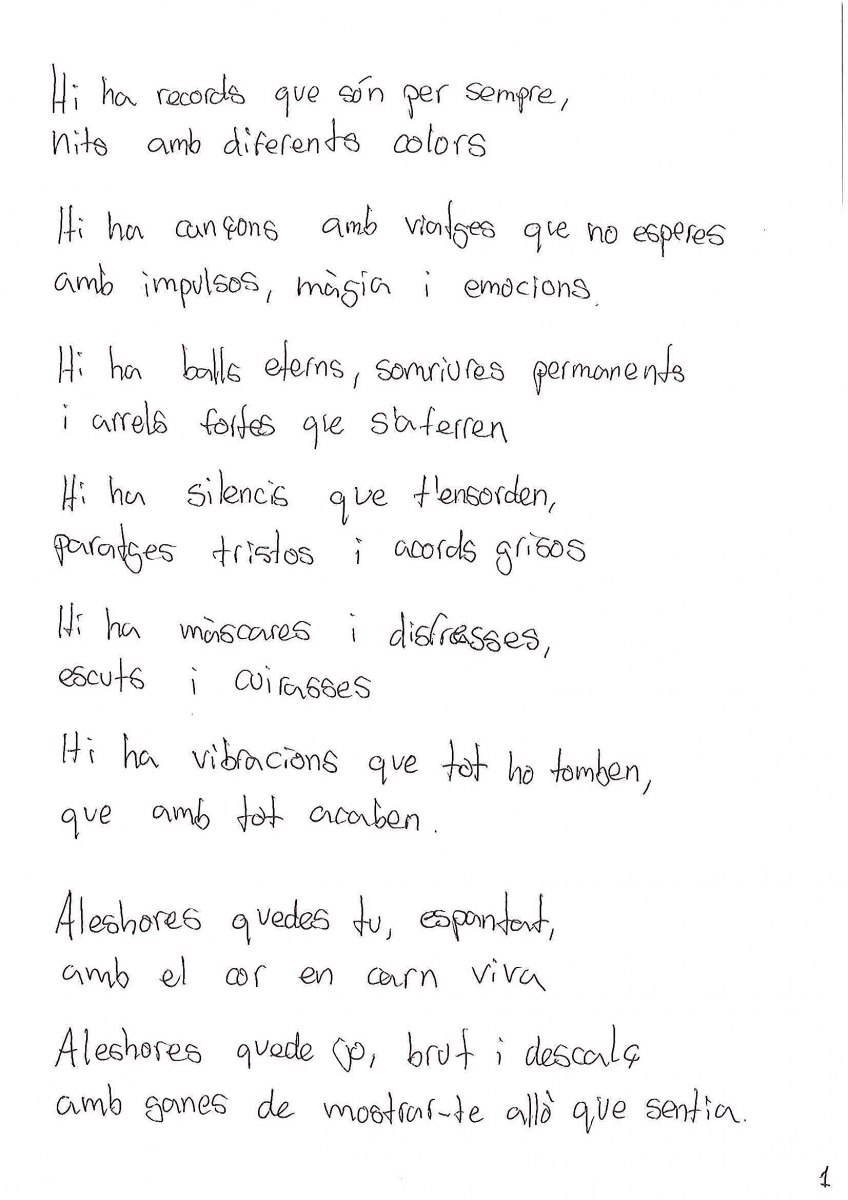 Hi ha records que són per sempre,
nits amb diferents colors
Hi ha cançons amb viatges que no esperes
amb impulsos, màgia i emocions.
Hi ha balls eterns, somriures permanents
i arrels fortes que s'aferren
Hi ha silencis que t'ensorden,
paratges tristos i acords grisos
Hi ha màscares i disfresses,
escuts i cuirasses
Hi ha vibracions que tot ho tomben,
que amb tot acaben.
Aleshores quedes tu, espantat,
amb el cor en carn viva
Aleshores quede jo, brut i descalç
amb ganes de mostrar-te allò que sentia.
1